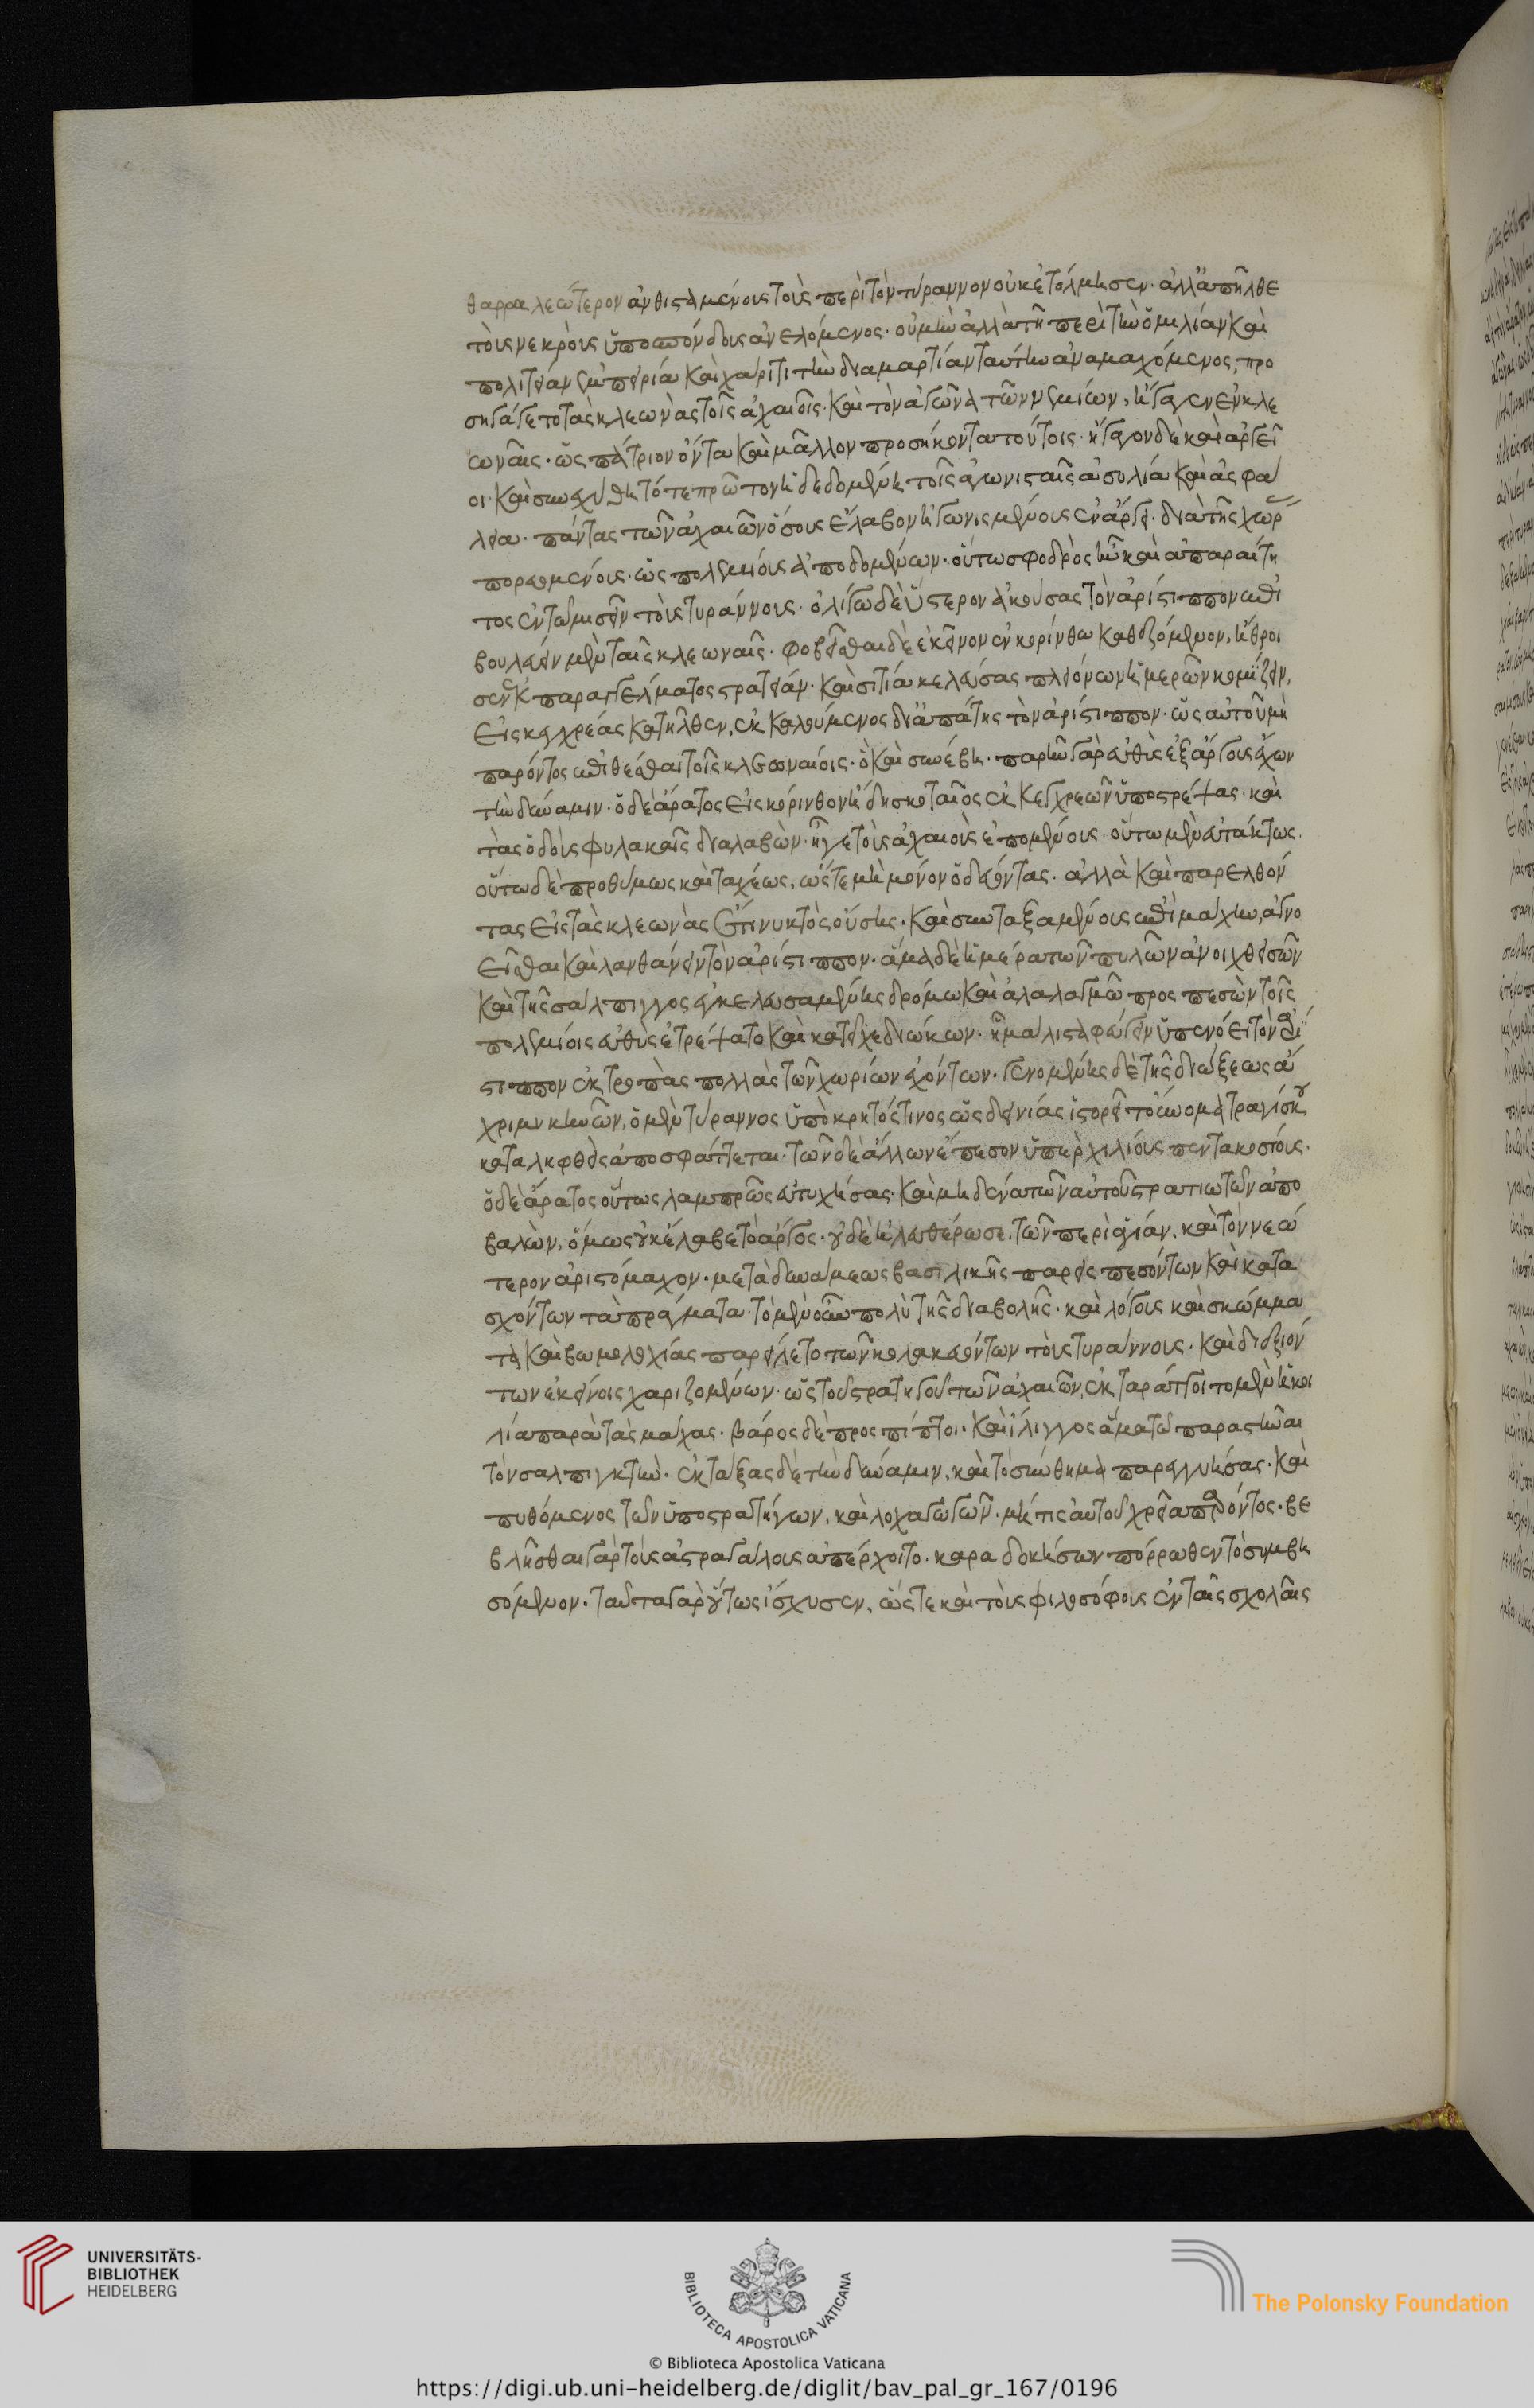 θαρραλεώτερον ἀνθισταμένους τοὺς περὶ τὸν τύραννον οὐκ ἐτόλμησεν· ἀλλ' ἀπῆλθε
τοὺς νεκροὺς ὑποσπόνδους ἀνελόμενος· οὐ μὴν ἀλλὰ τῇ περὶ τὴν ὁμιλίαν καὶ
πολιτείαν ἐμπειρίᾳ καὶ χάριτι τὴν διαμαρτίαν ταύτην ἀναμαχόμενος, προ
σηγάγετο τὰς κλεωνὰς τοῖς ἀχαιοῖς· καὶ τὸν ἀγῶνα τῶν νεμείων, ἤγαγεν ἐν κλε
ωναῖς· ὡς πάτριον ὄντα καὶ μᾶλλον προσήκοντα τούτοις· ἤγαγον δὲ καὶ ἀργεῖ
οι· καὶ συνεχύθη τότε πρῶτον ἡ δεδομένη τοῖς ἀγωνισταῖς ἀσυλία καὶ ἀσφά
λεια· πάντας τῶν ἀχαιῶν ὅσους ἔλαβον ἠγωνισμένους ἐν ἄργει· διὰ τῆς χώρ
πορευομένους· ὡς πολεμίους ἀποδομένων· οὕτω σφοδρὸς ἦν καὶ ἀπαραίτη
τος ἐν τῷ μισεῖν τοὺς τυράννους· ὀλίγῳ δὲ ὕστερον ἀκούσας τὸν ἀρίστιππον ἐπι
βουλεύειν μὲν ταῖς κλεωναῖς· φοβεῖσθαι δὲ ἐκεῖνον ἐν κορίνθῳ καθεζόμενον, ἤθροι
σεν ἐκ παραγγέλματος στρατείαν· καὶ σιτία κελεύσας πλειόνων ἡμερῶν κομίζειν,
εἰς κεγχρέας κατῆλθεν, ἐκκαλούμενος δι' ἀπάτης τὸν ἀρίστιππον· ὡς αὐτοῦ μὴ
παρόντος ἐπιθέσθαι τοῖς κλεωναίοις· ὃ καὶ συνέβη· παρῆν γὰρ εὐθὺς ἐξ ἄργους ἔχων
τὴν δύναμιν· ὁ δὲ ἄρατος εἰς κόρινθον ἤδη σκοταῖος ἐκ κεγχρεῶν ὑποστρέψας· καὶ
τὰς ὁδοὺς φυλακαῖς διαλαβὼν· ἦγε τοὺς ἀχαιοὺς ἑπομένους· οὕτω μὲν εὐτάκτως.
οὕτω δὲ προθύμως καὶ ταχέως, ὥστε μὴ μόνον ὁδεύοντας· ἀλλὰ καὶ παρελθόν
τας εἰς τὰς κλεωνὰς ἔτι νυκτὸς οὔσης· καὶ συνταξαμένους ἐπὶ μάχην, ἀγνο
εῖσθαι καὶ λανθάνειν τὸν ἀρίστιππον· ἅμα δὲ ἡμέρᾳ τῶν πυλῶν ἀνοιχθεισῶν
καὶ τῆς σάλπιγγος ἐγκελευσαμένης δρόμῳ καὶ ἀλαλαγμῷ προσπεσὼν τοῖς
πολεμίοις εὐθὺς ἐτρέψατο καὶ κατεῖχε διώκων· ᾗ μάλιστα φεύγειν ὑπενόει τὸν ἀρί
στιππον ἐκτροπὰς πολλὰς τῶν χωρίων ἐχόντων· γενομένης δὲ τῆς διώξεως ἄ
χρι μυκηνῶν, ὁ μὲν τύραννος ὑπὸ κρητός τινος ὡς δεινίας ἱστορεῖ τοὔνομα τραγίσκου
καταληφθεὶς ἀποσφάττεται· τῶν δὲ ἄλλων ἔπεσον ὑπὲρ χιλίους πεντακοσίους·
ὁ δὲ ἄρατος οὕτως λαμπρῶς εὐτυχήσας· καὶ μηδένα τῶν αὐτοῦ στρατιωτῶν ἀπο
βαλὼν, ὅμως οὐκ ἔλαβε τὸ ἄργος· οὐδὲ ἠλευθέρωσε, τῶν περὶ ἀγίαν, καὶ τὸν νεώ
τερον ἀριστόμαχον· μετὰ δυνάμεως βασιλικῆς παρεισπεσόντων καὶ κατα
σχόντων τὰ πράγματα· τὸ μὲν οὖν πολὺ τῆς διαβολῆς· καὶ λόγους καὶ σκώμμα
τα καὶ βωμολοχίας παρείλετο τῶν κολακευόντων τοὺς τυράννους· καὶ διεξιόν
των ἐκείνοις χαριζομένων· ὡς τοῦ στρατηγοῦ τῶν ἀχαιῶν, ἐκταράττοιτο μὲν ἡ κοι
λία παρὰ τὰς μάχας· βάρος δὲ προσπίπτοι· καὶ ἴλιγγος ἅμα τῷ παραστῆναι
τὸν σαλπιγκτήν· ἐκτάξας δὲ τὴν δύναμιν, καὶ τὸ σύνθημα παρεγγυήσας· καὶ
πυθόμενος τῶν ὑποστρατήγων, καὶ λοχαγωγῶν· μή τις αὐτοῦ χρεία παρόντος· βε
βλῆσθαι γὰρ τοὺς ἀστραγάλους ἀπέρχοιτο· καραδοκήσων πόρρωθεν τὸ συμβη
σόμενον· ταῦτα γὰρ οὕτως ἴσχυσεν, ὥστε καὶ τοὺς φιλοσόφους ἐν ταῖς σχολαῖς
UNIVERSITÄTS-
BIBLIOTHEK
HEIDELBERG
BIBLIOTECA APOSTOLICA VATICANA
The Polonsky Foundation
© Biblioteca Apostolica Vaticana
https://digi.ub.uni-heidelberg.de/diglit/bav_pal_gr_167/0196